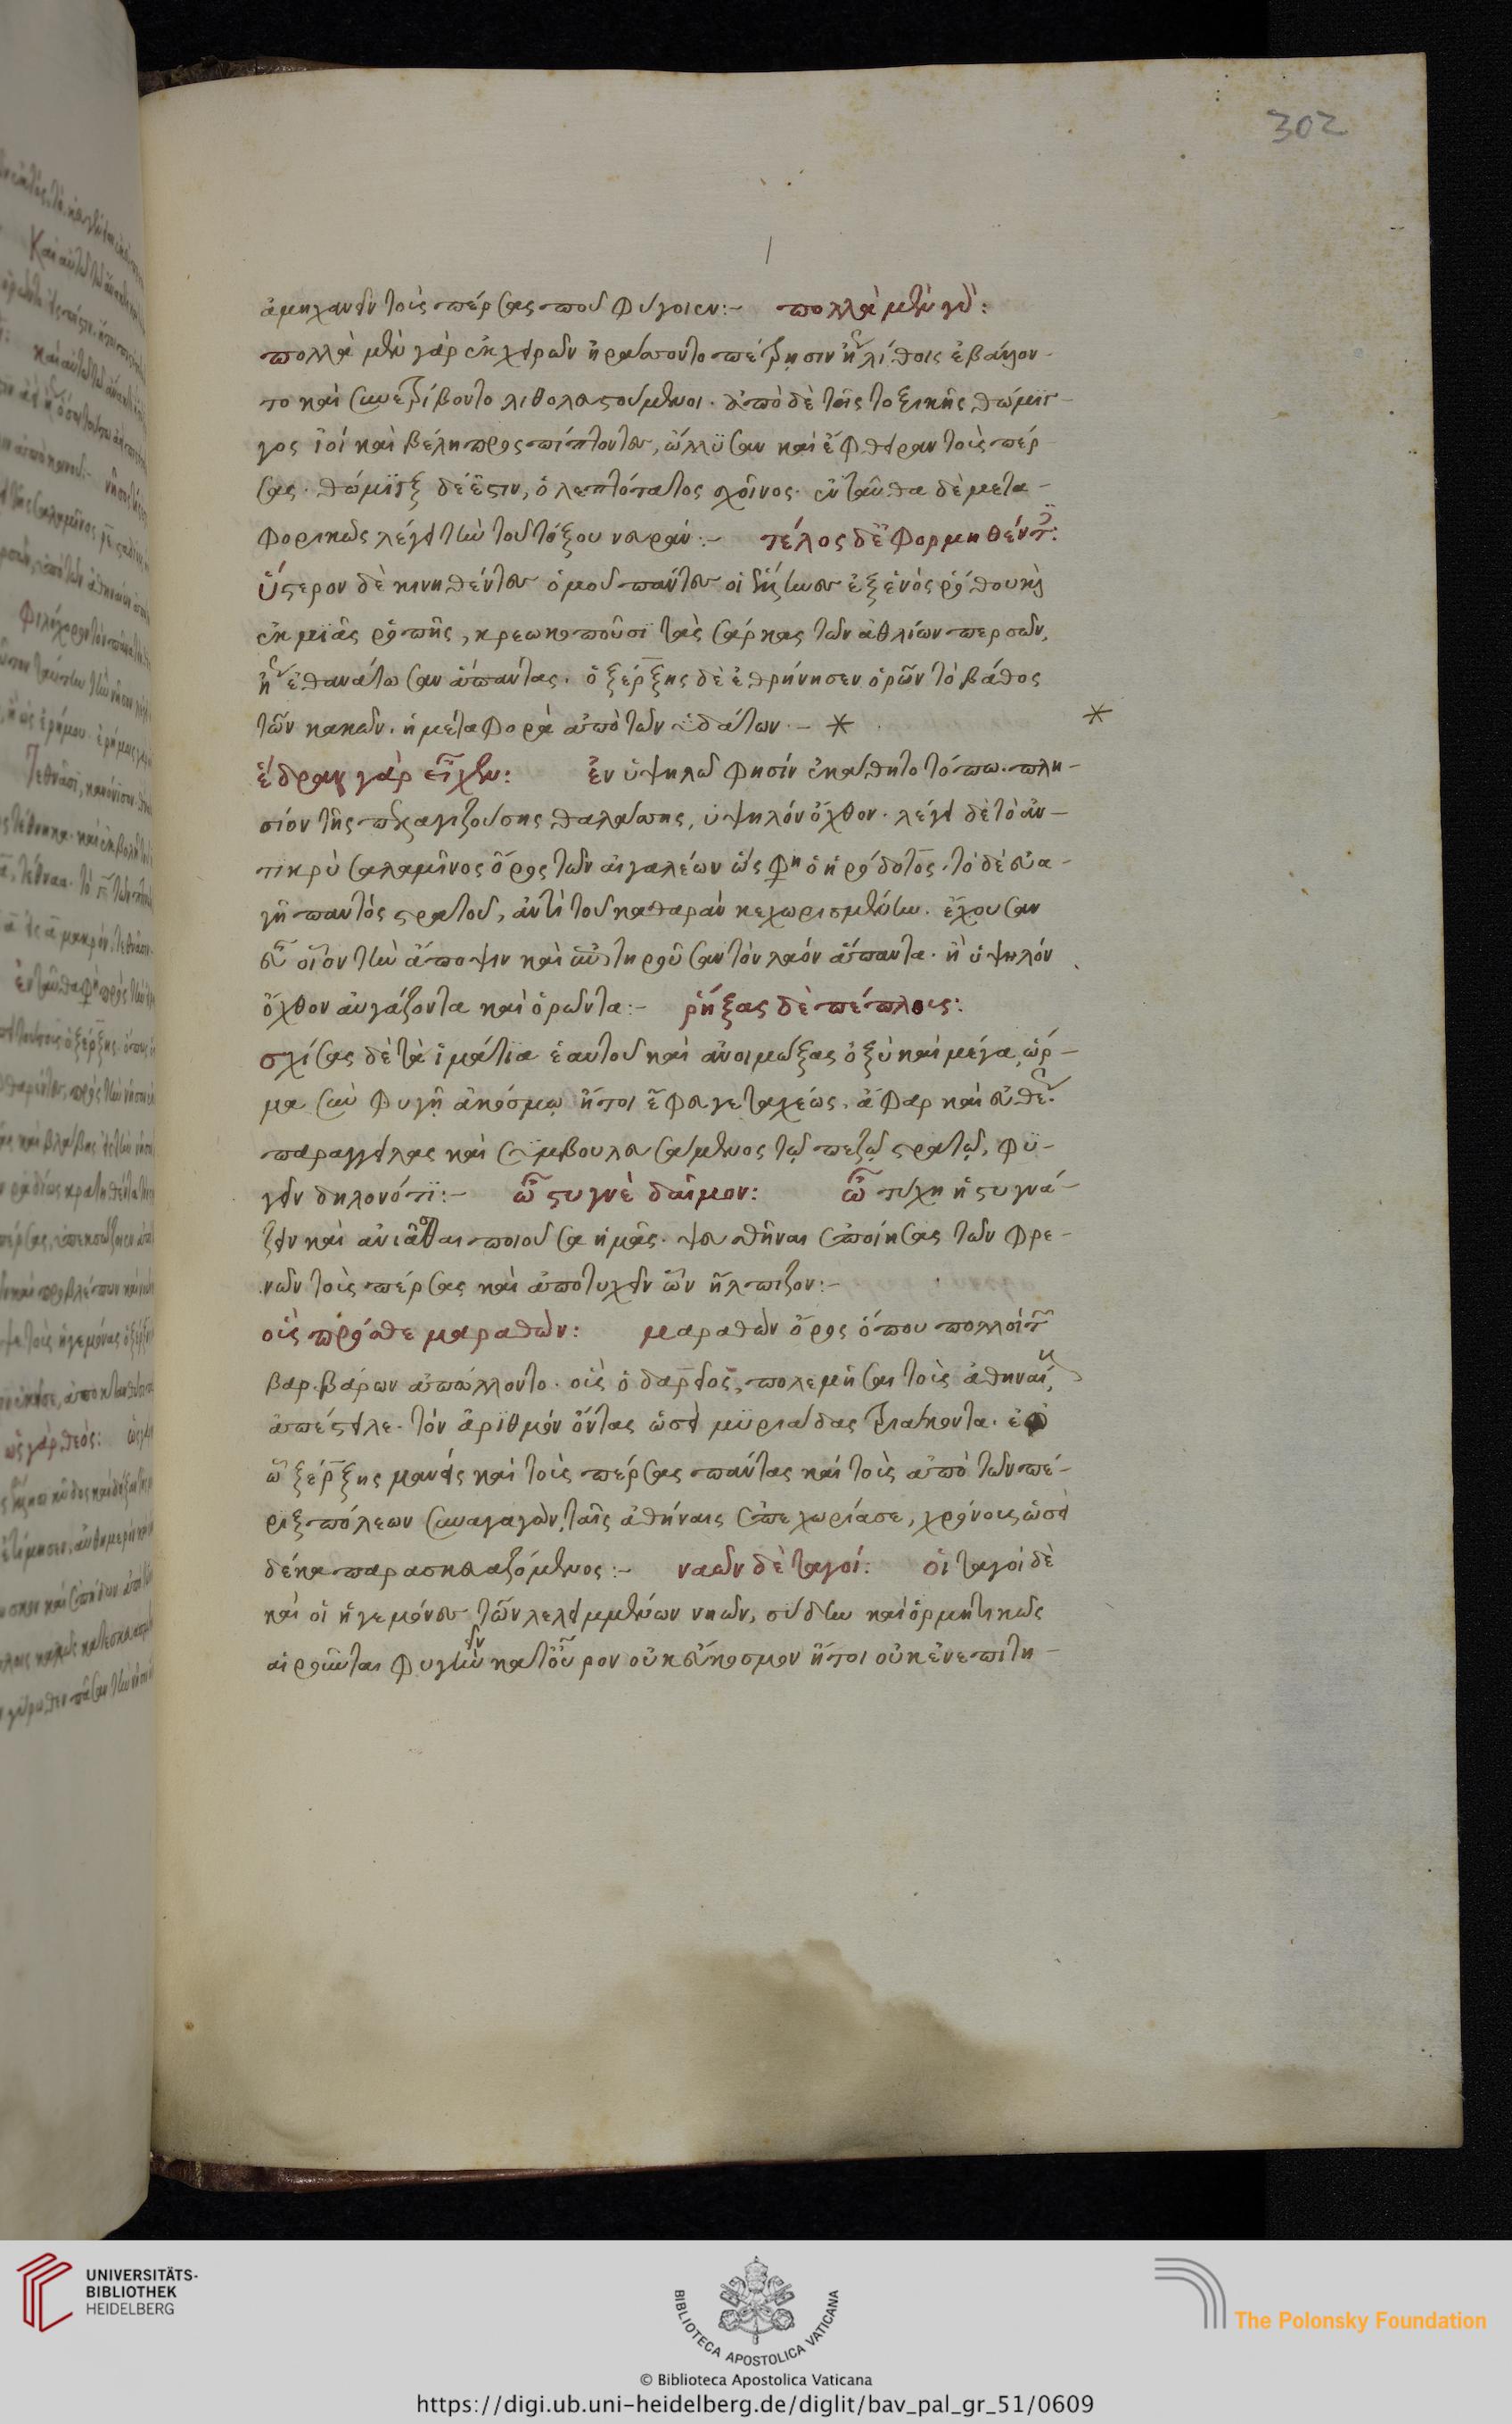 302
ἀμηχανεῖν τοὺς πέρσας ποῦ φύγοιεν:– πολλὰ μὲν γὰρ:
πολλὰ μὲν γὰρ ἐκ χειρῶν ἠράσσοντο πέτρησιν ἢ λίθοις ἐβάλλον-
το καὶ συνετρίβοντο λιθολευστούμενοι. ἀπὸ δὲ τῆς τοξικῆς θώμιγ-
γος ἰοὶ καὶ βέλη προσπίπτοντες, ὤλλυσαν καὶ ἔφθειραν τοὺς πέρ-
σας. θώμιγξ δέ ἐστιν, ὁ λεπτότατος σχοῖνος. ἐνταῦθα δὲ μετα-
φορικῶς λέγει τὴν τοῦ τόξου νευράν:– τέλος δ' ἐφορμηθέντες:
ὕστερον δὲ κινηθέντες ὁμοῦ πάντες οἱ ἕλληνες ἐξ ἑνὸς ῥόθου καὶ
ἐκ μιᾶς ῥοπῆς, κρεωκοποῦσι τὰς σάρκας τῶν ἀθλίων περσῶν,
ἢ ἐθανάτωσαν ἅπαντας. ὁ ξέρξης δὲ ἐθρήνησεν ὁρῶν τὸ βάθος
τῶν κακῶν. ἡ μεταφορὰ ἀπὸ τῶν ὑδάτων.– * *
ἕδραν γὰρ εἶχεν: ἐν ὑψηλῷ φησίν ἐκάθητο τόπῳ. πλη-
σίον τῆς πελαγιζούσης θαλάσσης, ὑψηλόν ὄχθον. λέγει δὲ τὸ ἀν-
τικρὺ σαλαμῖνος ὄρος τῶν αἰγαλέων ὥς φη ὁ ἡρόδοτος. τὸ δὲ εὐα-
γῆ παντὸς στρατοῦ, ἀντὶ τοῦ καθαρὰν κεχωρισμένην. ἔχουσαν
εὖ οἷον τὴν ἄποψιν καὶ εὖ τηροῦσαν τὸν λαὸν ἅπαντα. ἢ ὑψηλόν
ὄχθον αὐγάζοντα καὶ ὁρῶντα:– ῥήξας δὲ πέπλους:
σχίσας δὲ τὰ ἱμάτια ἑαυτοῦ καὶ ἀνοιμώξας ὀξὺ καὶ μέγα, ὥρ-
μα σὺν φυγῇ ἀκόσμῳ ἤτοι ἔφευγε ταχέως. ἄφαρ καὶ εὐθὺς
παραγγείλας καὶ συμβουλευσάμενος τῷ πεζῷ στρατῷ, φύ-
γειν δηλονότι:– ὦ στυγνὲ δαῖμον: ὦ τύχη ἡ στυγνά-
ζειν καὶ ἀνιᾶσθαι ποιοῦσα ἡμᾶς. ψευσθῆναι ἐποίησας τῶν φρε-
νῶν τοὺς πέρσας καὶ ἀποτυχεῖν ὧν ἤλπιζον:–
οὓς πρόσθε μαραθών: μαραθὼν ὄρος ὅπου πολλοὶ τῶν
βαρβάρων ἀπώλλοντο. οὓς ὁ δαρεῖος, πολεμῆσαι τοῖς ἀθηναίοις
ἀπέστειλε. τὸν ἀριθμὸν ὄντας ὡσεὶ μυριάδας τριάκοντα. ἐφ'
ᾧ ξέρξης μανεὶς καὶ τοὺς πέρσας πάντας καὶ τοὺς ἀπὸ τῶν πέ-
ριξ πόλεων συναγαγών, ταῖς ἀθήναις ἐπεχωρίασε, χρόνους ὡσεὶ
δέκα παρασκευαζόμενος:– ναῶν δὲ ταγοί: οἱ ταγοὶ δὲ
καὶ οἱ ἡγεμόνες τῶν λελειμμένων νηῶν, σύδην καὶ ὁρμητικῶς
αἱροῦνται φυγὴν κατ' οὖρον οὐκ εὔκοσμον ἤτοι οὐκ ἐνεπιτη-
UNIVERSITÄTS-
BIBLIOTHEK
HEIDELBERG
BIBLIOTECA APOSTOLICA VATICANA
The Polonsky Foundation
© Biblioteca Apostolica Vaticana
https://digi.ub.uni-heidelberg.de/diglit/bav_pal_gr_51/0609